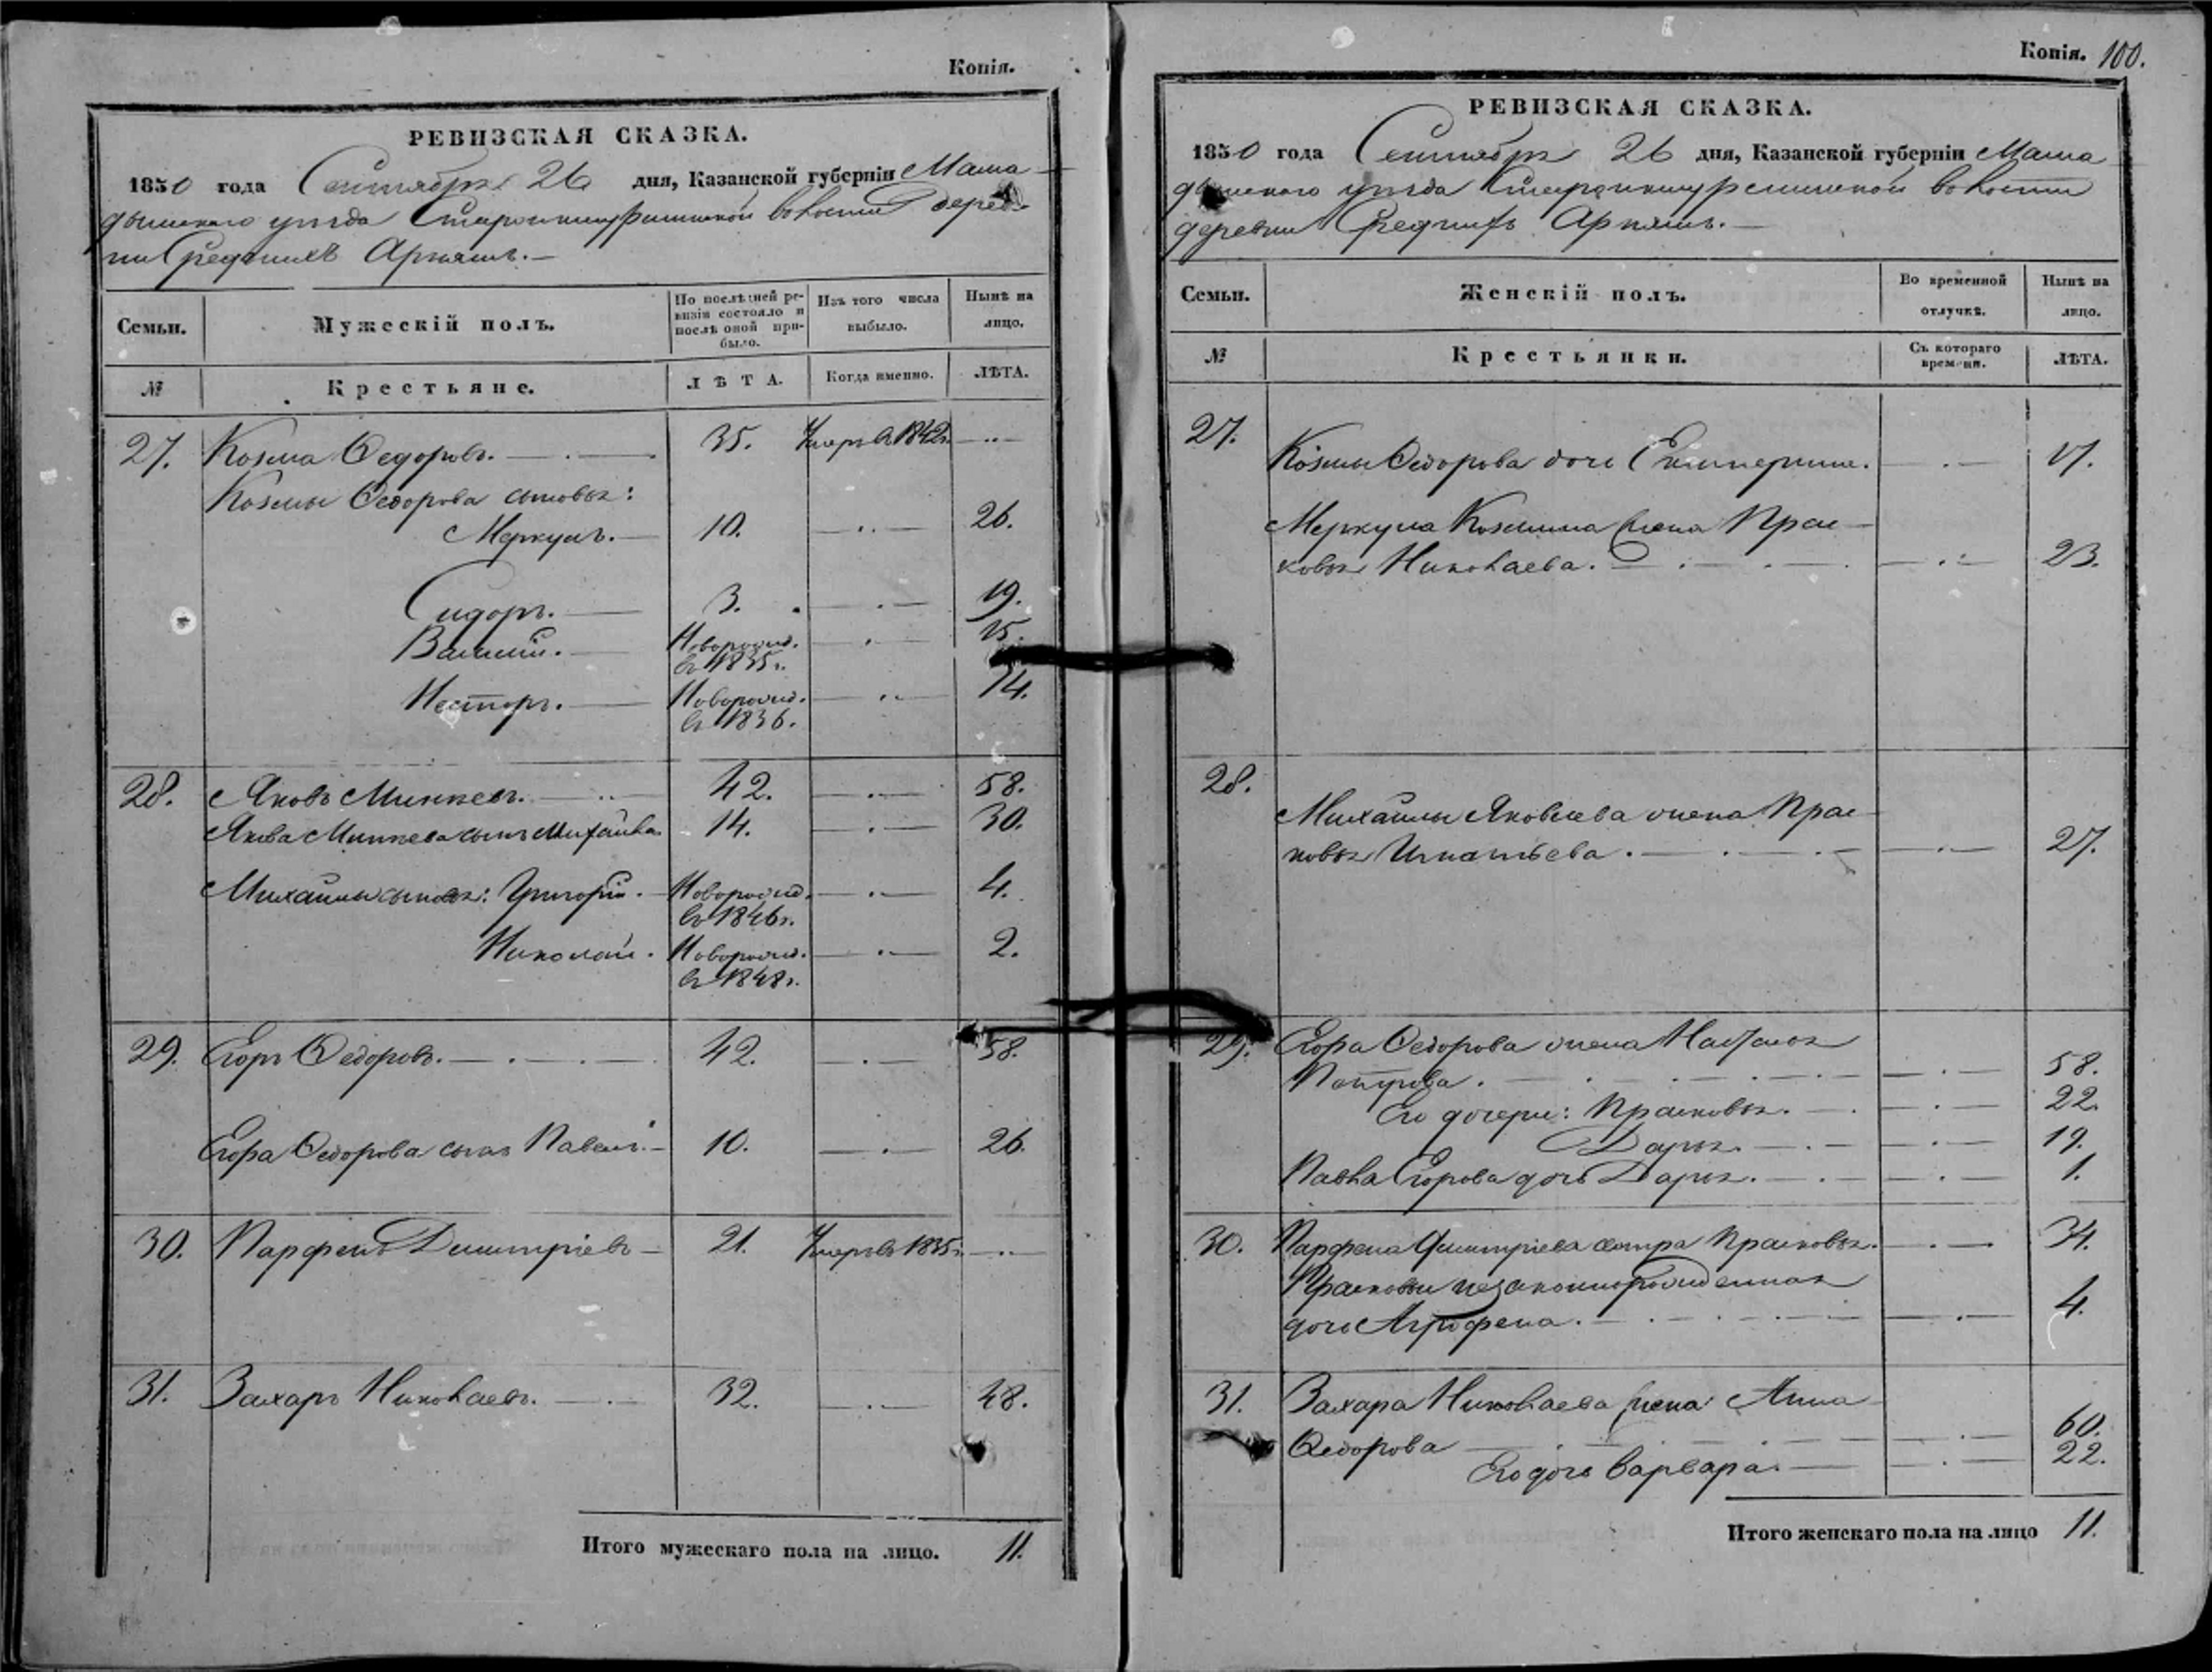 Копія.
РЕВИЗСКАЯ СКАЗКА.
1850 года Сентября 26 дня, Казанской губерніи Мама
дышскаго уѣзда Старокишметьевской волости дерев
ни Среднихъ Арняшъ.
Семьи. Мужескій полъ. По послѣдней ре-
визіи состояло и
послѣ оной при-
было. Изъ того числа
выбыло. Нынѣ на
лицо.
№ Крестьяне. ЛѢТА. Когда именно. ЛѢТА.
27. Козма Ѳедоровъ. 35. Умеръ въ 1842г.
Козмы Ѳедорова сыновья:
Меркулъ. 10. 26.
Сидоръ. 3. 19.
Василій. Новорожд. 15.
въ 1835г.
Несторъ. Новорожд. 14.
въ 1836.
28. Яковъ Минѣевъ. 42. 58.
Якова Минѣева сынъ Михайла 14. 30.
Михайлы сыновья: Григорій. Новорожд. 4.
въ 1846г.
Николай. Новорожд. 2.
въ 1848г.
29. Егоръ Ѳедоровъ. 42. 58.
Егора Ѳедорова сынъ Павелъ. 10. 26.
30. Парфенъ Димитріевъ 21. Умеръ въ 1835г.
31. Захаръ Николаевъ. 32. 48.
Итого мужескаго пола на лицо. 11.
Копія. 100.
РЕВИЗСКАЯ СКАЗКА.
1850 года Сентября 26 дня, Казанской губерніи Мама
дышскаго уѣзда волости
деревни Среднихъ Арняшъ.
Семьи. Женскій полъ. Во временной
отлучкѣ. Нынѣ на
лицо.
№ Крестьянки. Съ котораго
времени. ЛѢТА.
27. Козмы Ѳедорова дочь Екатерина. 17.
Меркула Козмина жена Прас
ковья Николаева. 23.
28. Михайлы Яковлева жена Прас
ковья Игнатьева. 27.
29. Егора Ѳедорова жена Наталья
Петрова. 58.
Его дочери: Прасковья. 22.
Дарья. 19.
Павла Егорова дочь Дарья. 1.
30. Парфена Димитріева сестра Прасковья. 34.
Прасковьи незаконнорожденная
дочь Агрофена. 4.
31. Захара Николаева жена Анна
Ѳедорова 60.
Его дочь Варвара. 22.
Итого женскаго пола на лицо 11.